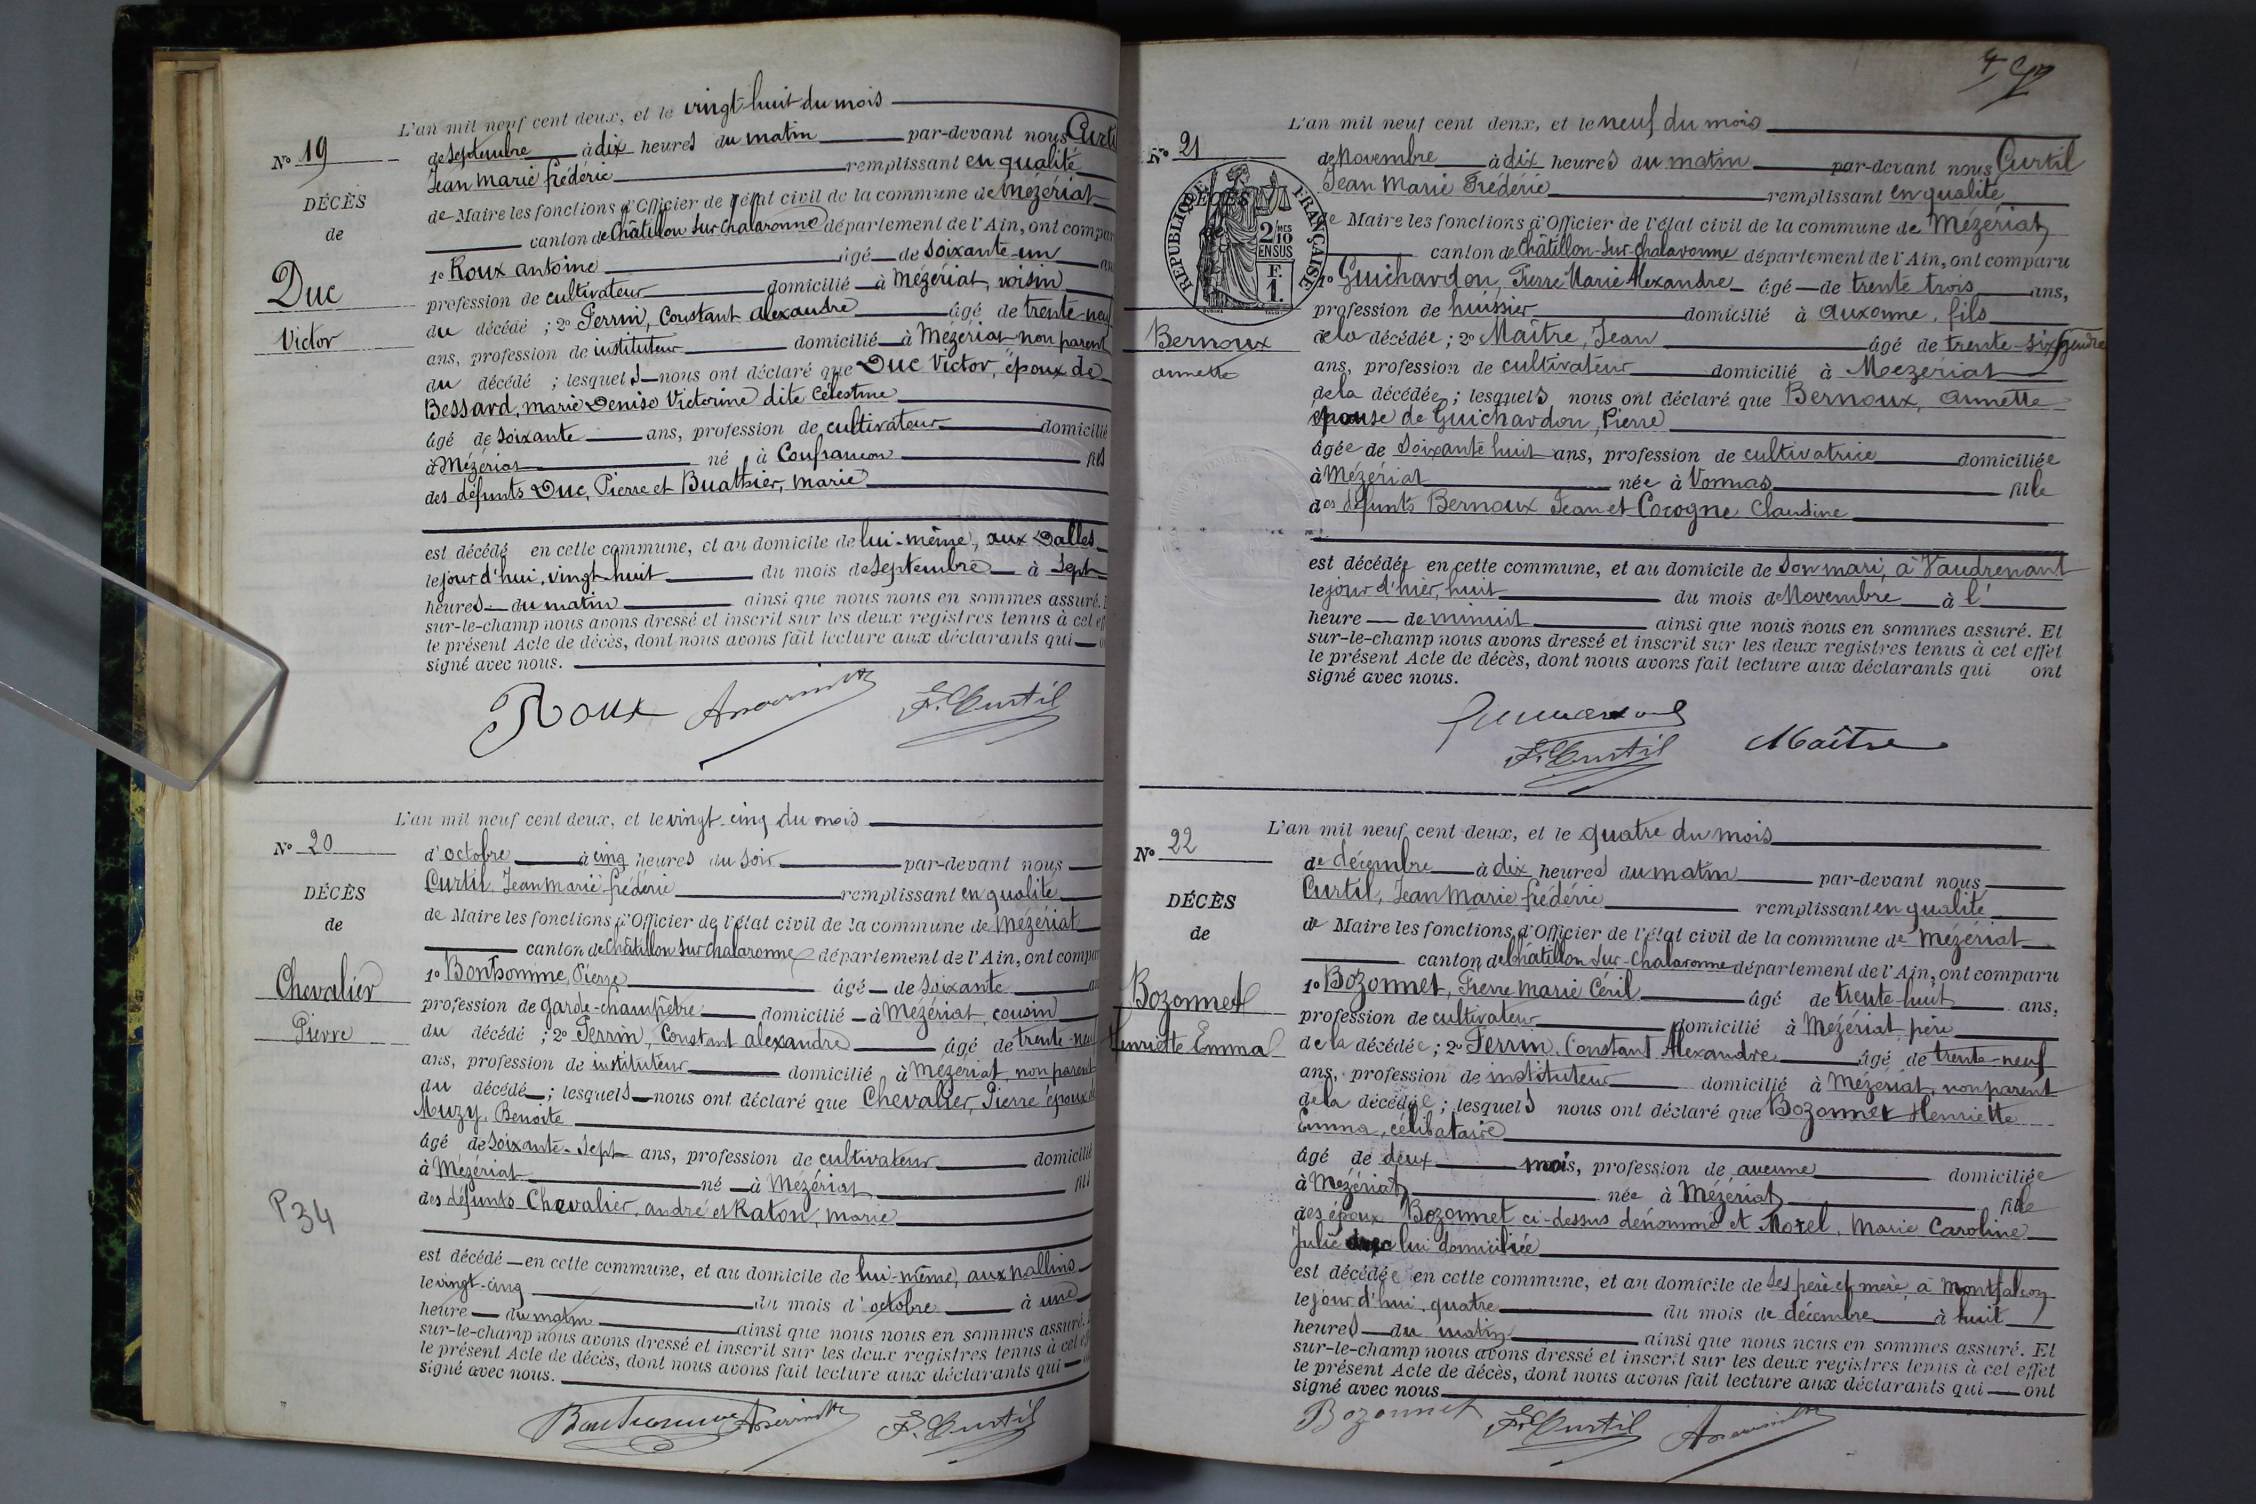 L'an mil neuf cent deux, et le vingt-huit du mois
N° 19
de septembre à dix heures du matin par-devant nous Curtil
Jean Marie frédéric remplissant en qualité
DÉCÈS
de Maire les fonctions d'Officier de l'état civil de la commune de Mézériat
de
canton de Châtillon sur Chalaronne département de l'Ain, ont compar
1° Roux antoine âgé de soixante-un an
Duc
profession de cultivateur domicilié à Mézériat, voisin
du décédé ; 2° Perrin, Constant alexandre âgé de trente-neuf
Victor
ans, profession de instituteur domicilié à Mézériat non parent
du décédé ; lesquels nous ont déclaré que Duc Victor, époux de
Bessard, marie Denise Victorine dite Célestine
âgé de soixante ans, profession de cultivateur domicilié
à Mézériat né à Confrancon fils
des défunts Duc, Pierre et Buathier, marie
est décédé en cette commune, et au domicile de lui-même, aux Dalles
le jour d'hui, vingt huit du mois de septembre à sept
heures du matin ainsi que nous nous en sommes assuré. E
sur-le-champ nous avons dressé et inscrit sur les deux registres tenus à cet eff
le présent Acte de décès, dont nous avons fait lecture aux déclarants qui o
signé avec nous.
Roux F. Curtil
L'an mil neuf cent deux, et le vingt-cinq du mois
N° 20
d'octobre à cinq heures du soir par-devant nous
Curtil, Jean Marie frédéric remplissant en qualité
DÉCÈS
de Maire les fonctions d'Officier de l'état civil de la commune de Mézériat
de
canton de Châtillon sur Chalaronne département de l'Ain, ont compar
1° Bonhomme, Pierre âgé de soixante an
Chevalier
profession de garde-champêtre domicilié à Mézériat, cousin
Pierre
du décédé ; 2° Perrin, Constant alexandre âgé de trente-neuf
ans, profession de instituteur domicilié à Mézériat, non parent
du décédé ; lesquels nous ont déclaré que Chevalier, Pierre époux de
Muzy, Benoite
âgé de soixante-sept ans, profession de cultivateur domicilié
à Mézériat né à Mézériat fils
des défunts Chevalier, andré et Raton, marie
P34
est décédé en cette commune, et au domicile de lui-même, aux nallins
le vingt-cinq du mois d'octobre à une
heure du matin ainsi que nous nous en sommes assuré. E
sur-le-champ nous avons dressé et inscrit sur les deux registres tenus à cet eff
le présent Acte de décès, dont nous avons fait lecture aux déclarants qui
signé avec nous.
Bonhomme F. Curtil
L'an mil neuf cent deux, et le neuf du mois
N° 21
de Novembre à dix heures du matin par-devant nous Curtil
Jean Marie Frédéric remplissant en qualité
DÉCÈS
RÉPUBLIQUE FRANÇAISE
2/10 MES EN SUS
F. 1.
de Maire les fonctions d'Officier de l'état civil de la commune de Mézériat
canton de Châtillon-sur-Chalaronne département de l'Ain, ont comparu
1° Guichardon, Pierre Marie Alexandre âgé de trente trois ans,
profession de huissier domicilié à Auxonne, fils
Bernoux
annette
de la décédée ; 2° Maître, Jean âgé de trente-six gendre
ans, profession de cultivateur domicilié à Mezériat
de la décédée ; lesquels nous ont déclaré que Bernoux, annette
épouse de Guichardon, Pierre
âgée de soixante huit ans, profession de cultivatrice domiciliée
à Mézériat née à Vonnas fille
des défunts Bernoux Jean et Cocogne Claudine
est décédée en cette commune, et au domicile de son mari, à Vaudrenant
le jour d'hier, huit du mois de Novembre à l'
heure de minuit ainsi que nous nous en sommes assuré. Et
sur-le-champ nous avons dressé et inscrit sur les deux registres tenus à cet effet
le présent Acte de décès, dont nous avons fait lecture aux déclarants qui ont
signé avec nous.
F. Curtil Maître
L'an mil neuf cent deux, et le quatre du mois
N° 22
de décembre à dix heures du matin par-devant nous
Curtil, Jean Marie frédéric remplissant en qualité
DÉCÈS
de Maire les fonctions d'Officier de l'état civil de la commune de Mézériat
de
canton de Châtillon sur-Chalaronne département de l'Ain, ont comparu
Bozonnet
1° Bozonnet, Pierre Marie Céril âgé de trente-huit ans,
profession de cultivateur domicilié à Mézériat père
Henriette Emma
de la décédée ; 2° Perrin, Constant Alexandre âgé de trente-neuf
ans, profession de instituteur domicilié à Mézériat, non parent
de la décédée ; lesquels nous ont déclaré que Bozonnet Henriette
Emma, célibataire
âgé de deux mois, profession de aucune domiciliée
à Mézériat née à Mézériat fille
des époux Bozonnet ci-dessus dénommé et Morel, Marie Caroline
Julie avec lui domiciliée
est décédée en cette commune, et au domicile de ses père et mère, à Montfalcon
le jour d'hui, quatre du mois de décembre à huit
heures du matin ainsi que nous nous en sommes assuré. Et
sur-le-champ nous avons dressé et inscrit sur les deux registres tenus à cet effet
le présent Acte de décès, dont nous avons fait lecture aux déclarants qui ont
signé avec nous
Bozonnet F. Curtil